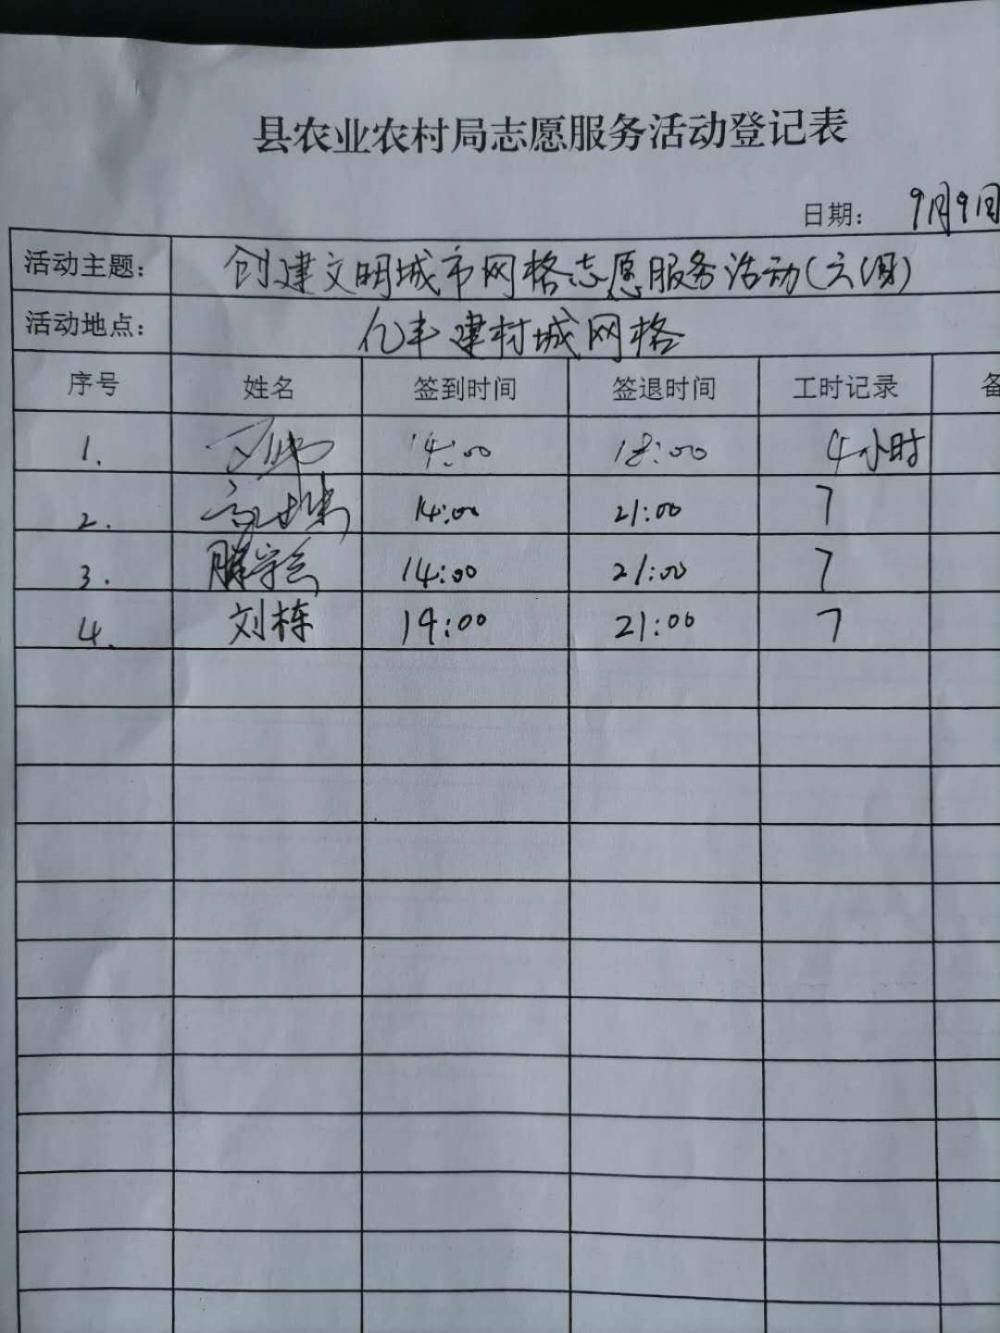 县农业农村局志愿服务活动登记表
日期： 9月9日
活动主题： 创建文明城市网格志愿服务活动(六组)
活动地点： 亿丰建材城网格
序号 姓名 签到时间 签退时间 工时记录 备
1. 14:00 18:00 4小时
2. 14:00 21:00 7
3. 滕守云 14:00 21:00 7
4. 刘栋 14:00 21:00 7